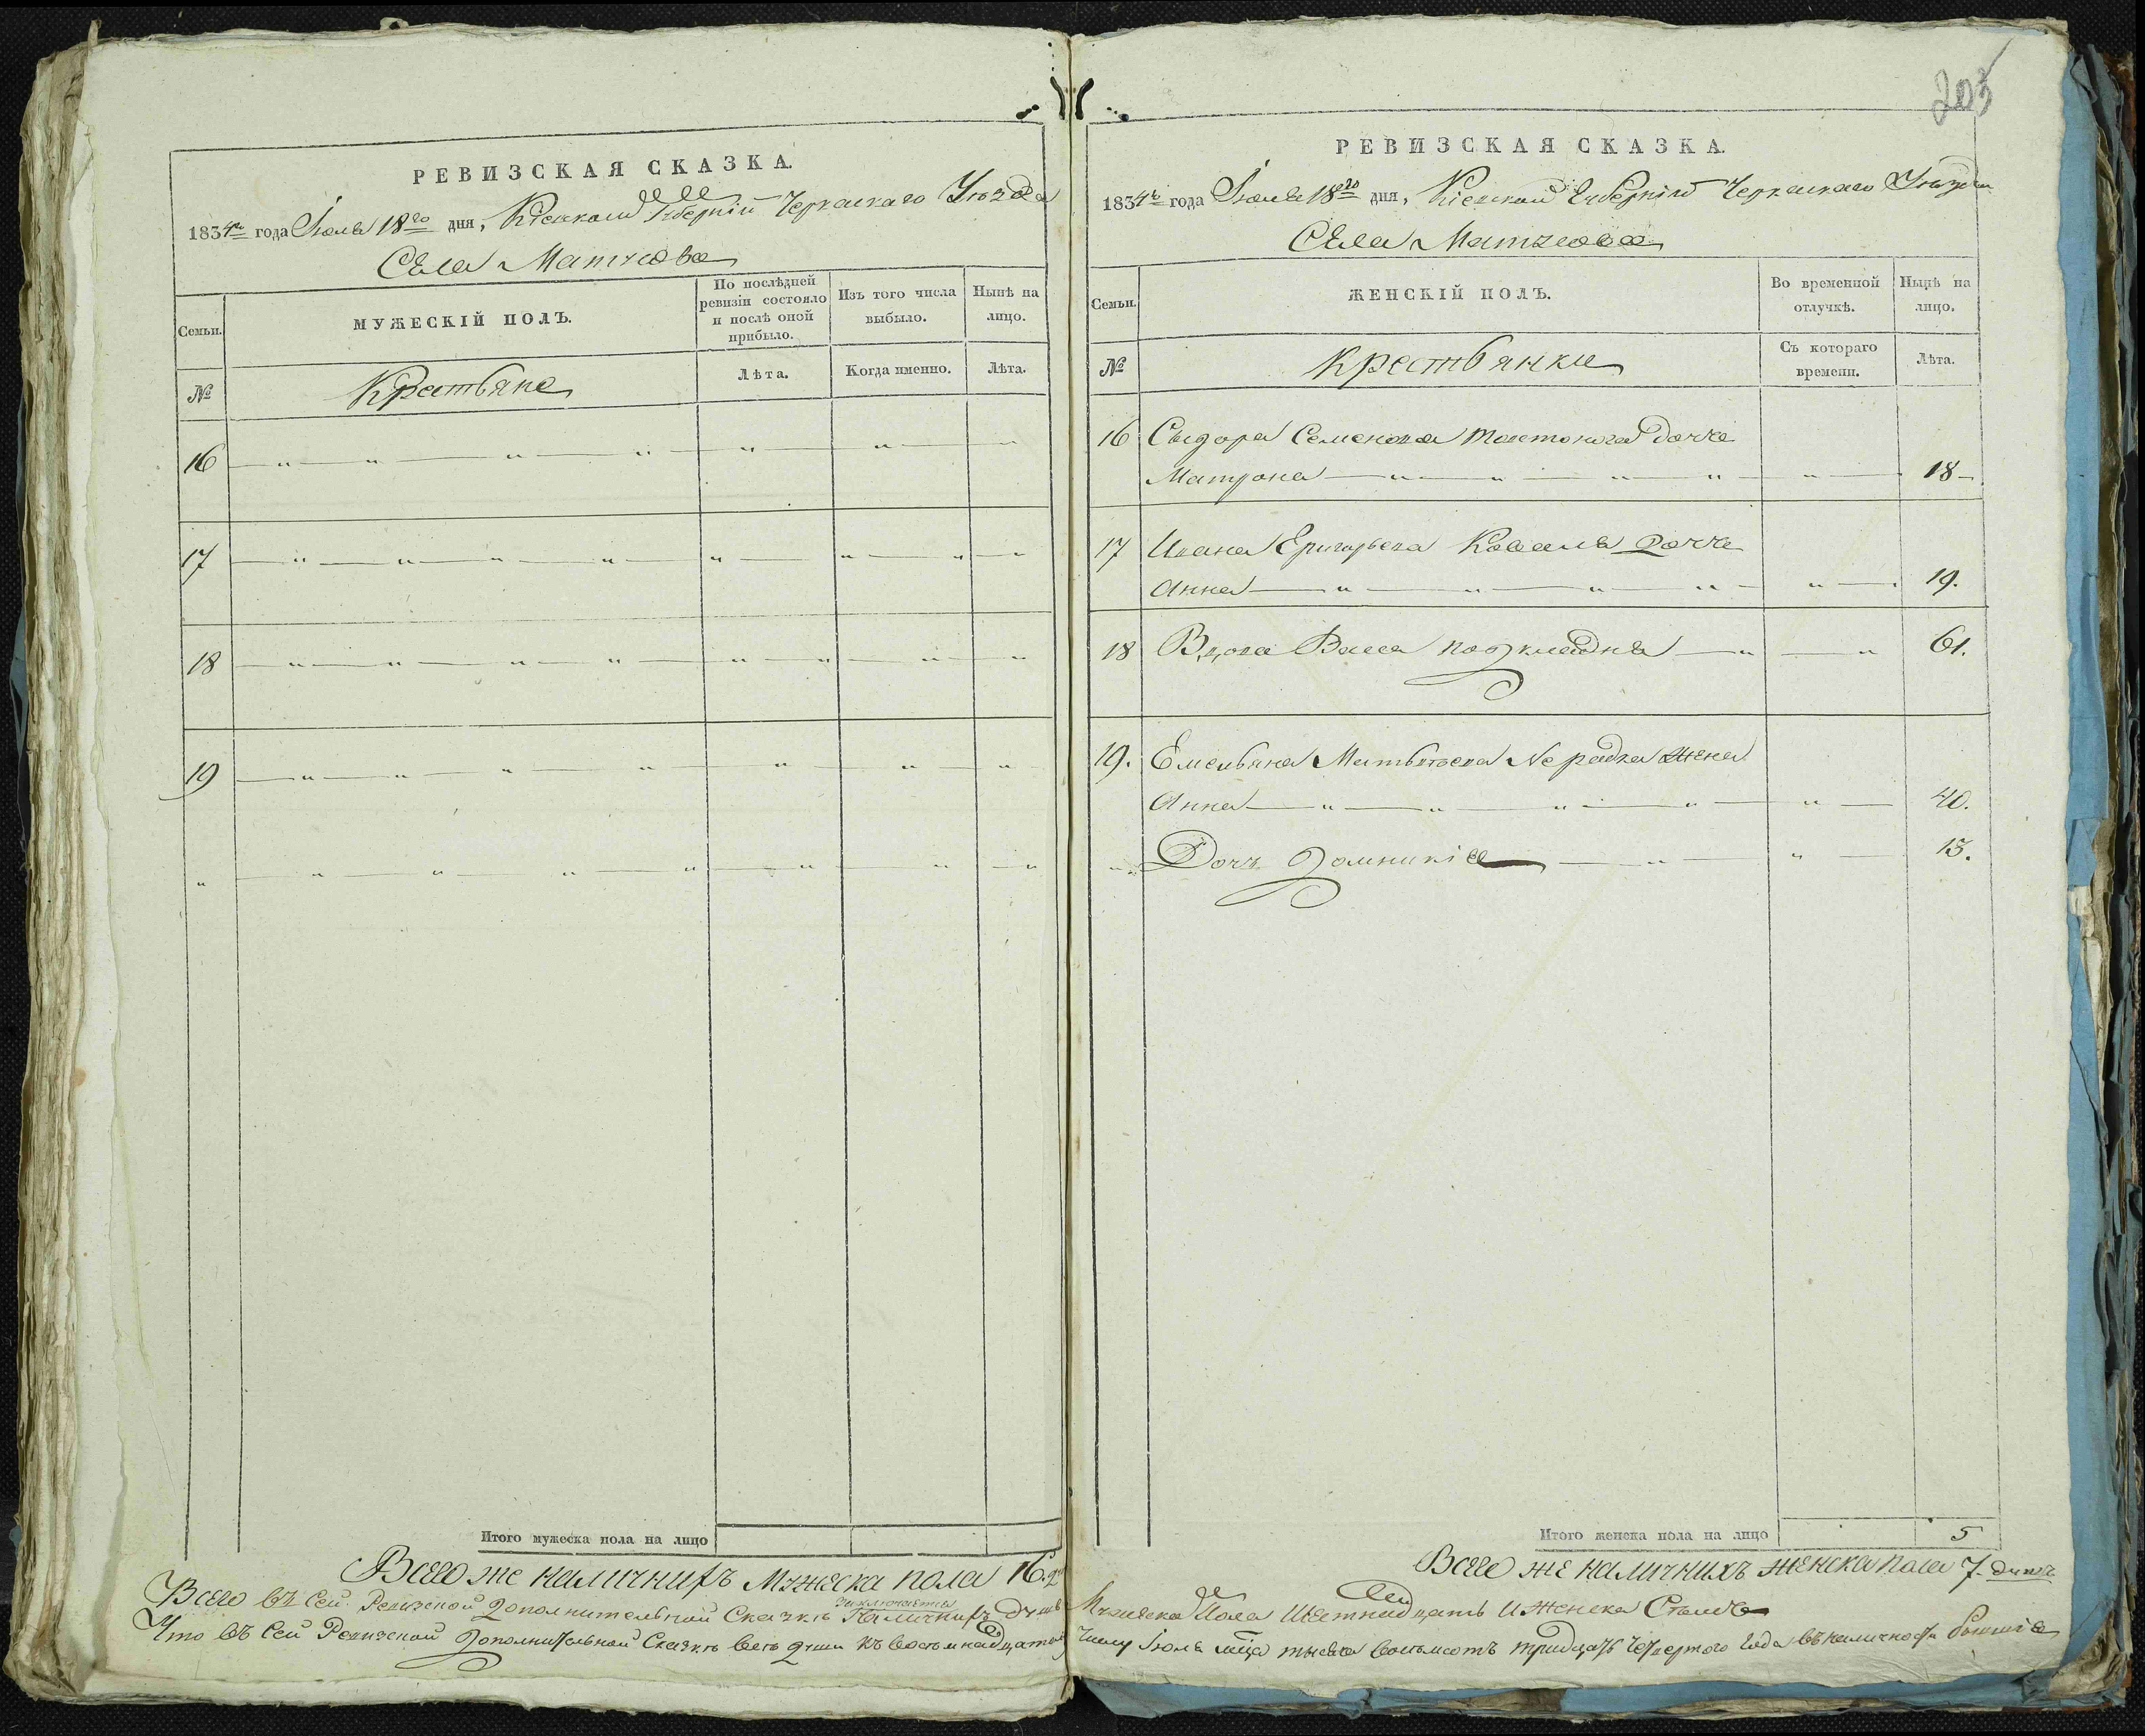 РЕВИЗСКАЯ СКАЗКА.
1834го года Іюля 18го дня, Кіевской Губерніи Черкаскаго Уезда
Села Матусова
Семьи.
МУЖЕСКІЙ ПОЛЪ.
По послѣдней ревизіи состояло и послѣ оной прибыло.
Изъ того числа выбыло.
Нынѣ на лицо.
№
Крестьяне
Лѣта.
Когда именно.
Лѣта.
16
17
18
19
Итого мужеска пола на лицо
Всего же наличнихъ Мужеска пола 16.
Всего въ сей Ревизской Дополнительной Сказкѣ заключается Наличнихъ Душъ
Что въ сей Ревизской Дополнительной Сказкѣ всѣ души къ восемнадцатому
203
РЕВИЗСКАЯ СКАЗКА.
1834го года Іюля 18го дня, Кіевской Губерніи Черкаскаго Уезда
Села Матусова
Семьи.
ЖЕНСКІЙ ПОЛЪ.
Во временной отлучкѣ.
Нынѣ на лицо.
№
Крестьянки
Съ котораго времени.
Лѣта.
16 Сидора Семенова Толстонога дочка
Матрона 18
17 Ивана Григорьева Коваля дочка
Анна 19.
18 Вдова Васса 61.
19. Емельяна Матвѣева Нерадка жена
Анна 40.
Дочь Домникія 13.
Итого женска пола на лицо 5
Всего же наличнихъ женска пола 7. душъ
Мужеска Пола Шестнадцать и Женска Столько
числу Іюля мца тысяча восемсотъ тридцать четвертого Года въ наличности